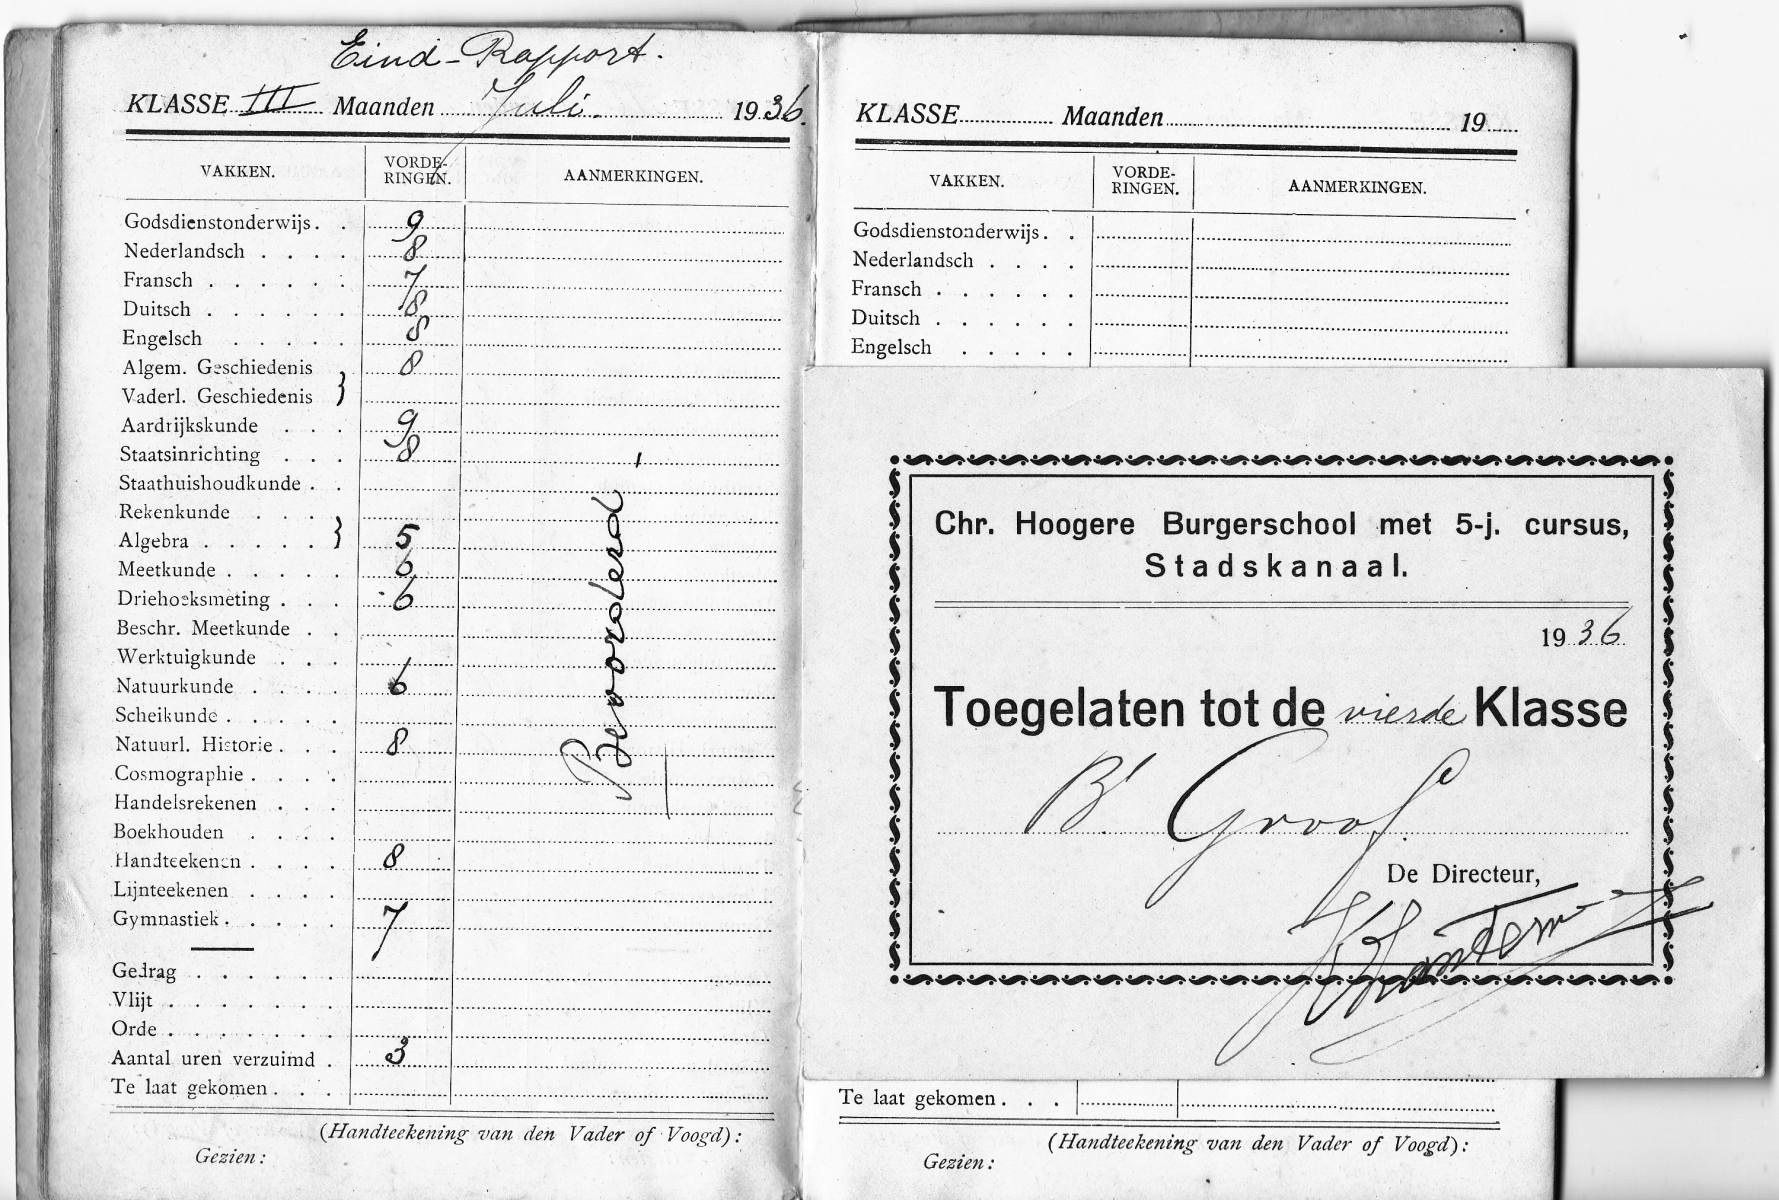 Eind-Rapport.
KLASSE III Maanden Juli. 1936.
VAKKEN. VORDE-RINGEN. AANMERKINGEN.
Godsdienstonderwijs. . 9
Nederlandsch . . . . 8
Fransch . . . . . . 7
Duitsch . . . . . . 8
Engelsch . . . . . 8
Algem. Geschiedenis 8
Vaderl. Geschiedenis }
Aardrijkskunde . . . 9
Staatsinrichting . . . 8
Staathuishoudkunde . .
Rekenkunde . . . .
Algebra . . . . . } 5
Meetkunde . . . . . 6
Driehoeksmeting . . . 6
Beschr. Meetkunde . .
Werktuigkunde . . .
Natuurkunde . . . . 6
Scheikunde . . . . .
Natuurl. Historie . . . 8
Cosmographie . . . .
Handelsrekenen . . .
Boekhouden . . . .
Handteekenen . . . . 8
Lijnteekenen . . . .
Gymnastiek . . . . . 7
Gedrag . . . . . .
Vlijt . . . . . . .
Orde . . . . . . .
Aantal uren verzuimd . 3
Te laat gekomen . . .
Bevorderd
(Handteekening van den Vader of Voogd):
Gezien:
KLASSE Maanden 19
VAKKEN. VORDE-RINGEN. AANMERKINGEN.
Godsdienstonderwijs. .
Nederlandsch . . . .
Fransch . . . . . .
Duitsch . . . . . .
Engelsch . . . . .
Chr. Hoogere Burgerschool met 5-j. cursus,
Stadskanaal.
1936
Toegelaten tot de vierde Klasse
B. Groof.
De Directeur,
Te laat gekomen . . .
(Handteekening van den Vader of Voogd):
Gezien: